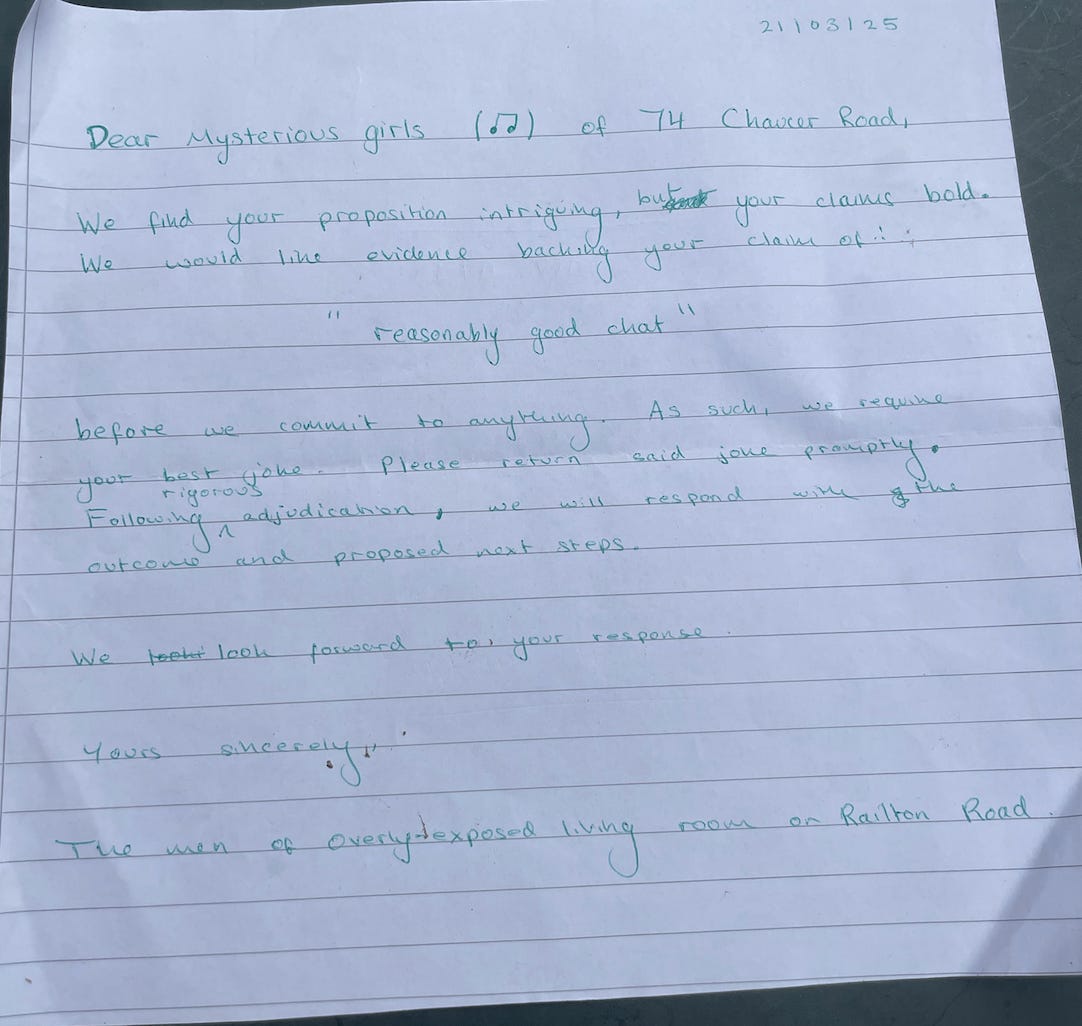 21/03/25
Dear Mysterious girls (♫) of 74 Chaucer Road,
We find your proposition intriguing, but your claims bold.
We would like evidence backing your claim of:
" reasonably good chat "
before we commit to anything. As such, we require
your best joke. Please return said joke promptly.
Following rigorous adjudication, we will respond with the
outcome and proposed next steps.
We look forward to your response.
Yours sincerely,
The men of overly-exposed living room on Railton Road.